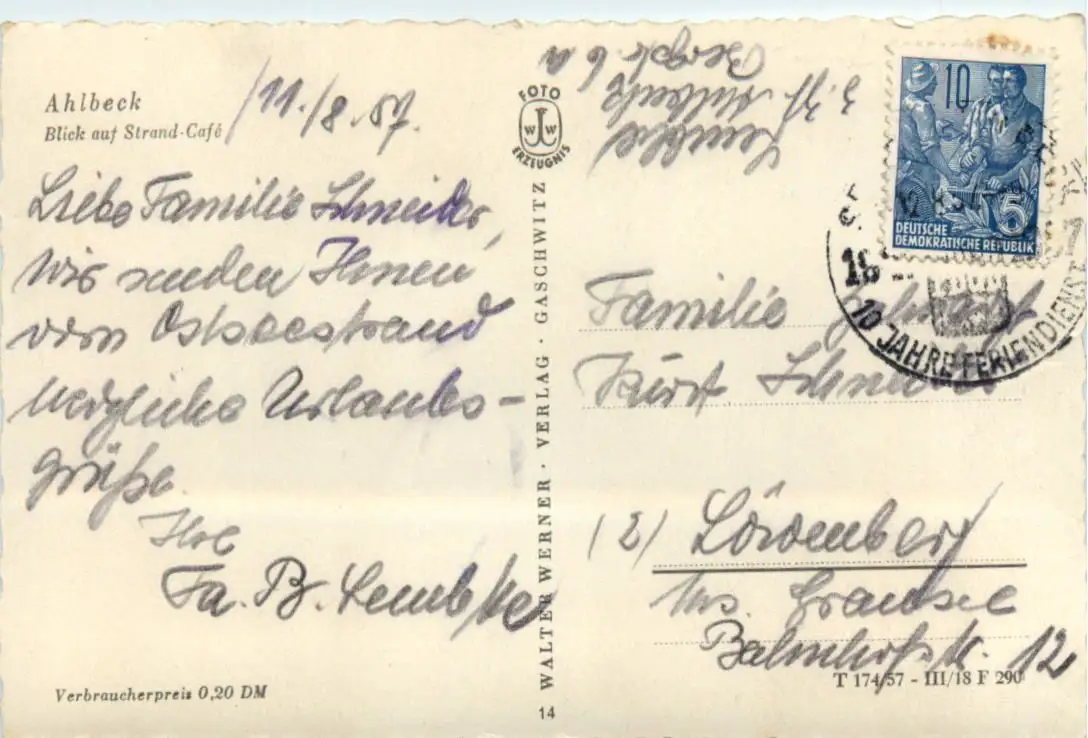 Ahlbeck
Blick auf Strand-Café
11./8.57.
Liebe Familie Schneider,
wir senden Ihnen
vom Ostseestrand
herzliche Urlaubs-
grüße.
Ihre
Fa. B. Lembke
Verbraucherpreis 0,20 DM
FOTO
W W
ERZEUGNIS
WALTER WERNER · VERLAG · GASCHWITZ
14
z. Zt. Ahlbeck
Bergstr. 6a
10
5
DEUTSCHE
DEMOKRATISCHE REPUBLIK
10 JAHRE FERIENDIENST
Familie
Kurt Schneider
(2) Löwenberg
Krs. Gransee
Bahnhofstr. 12
T 174/57 - III/18 F 290